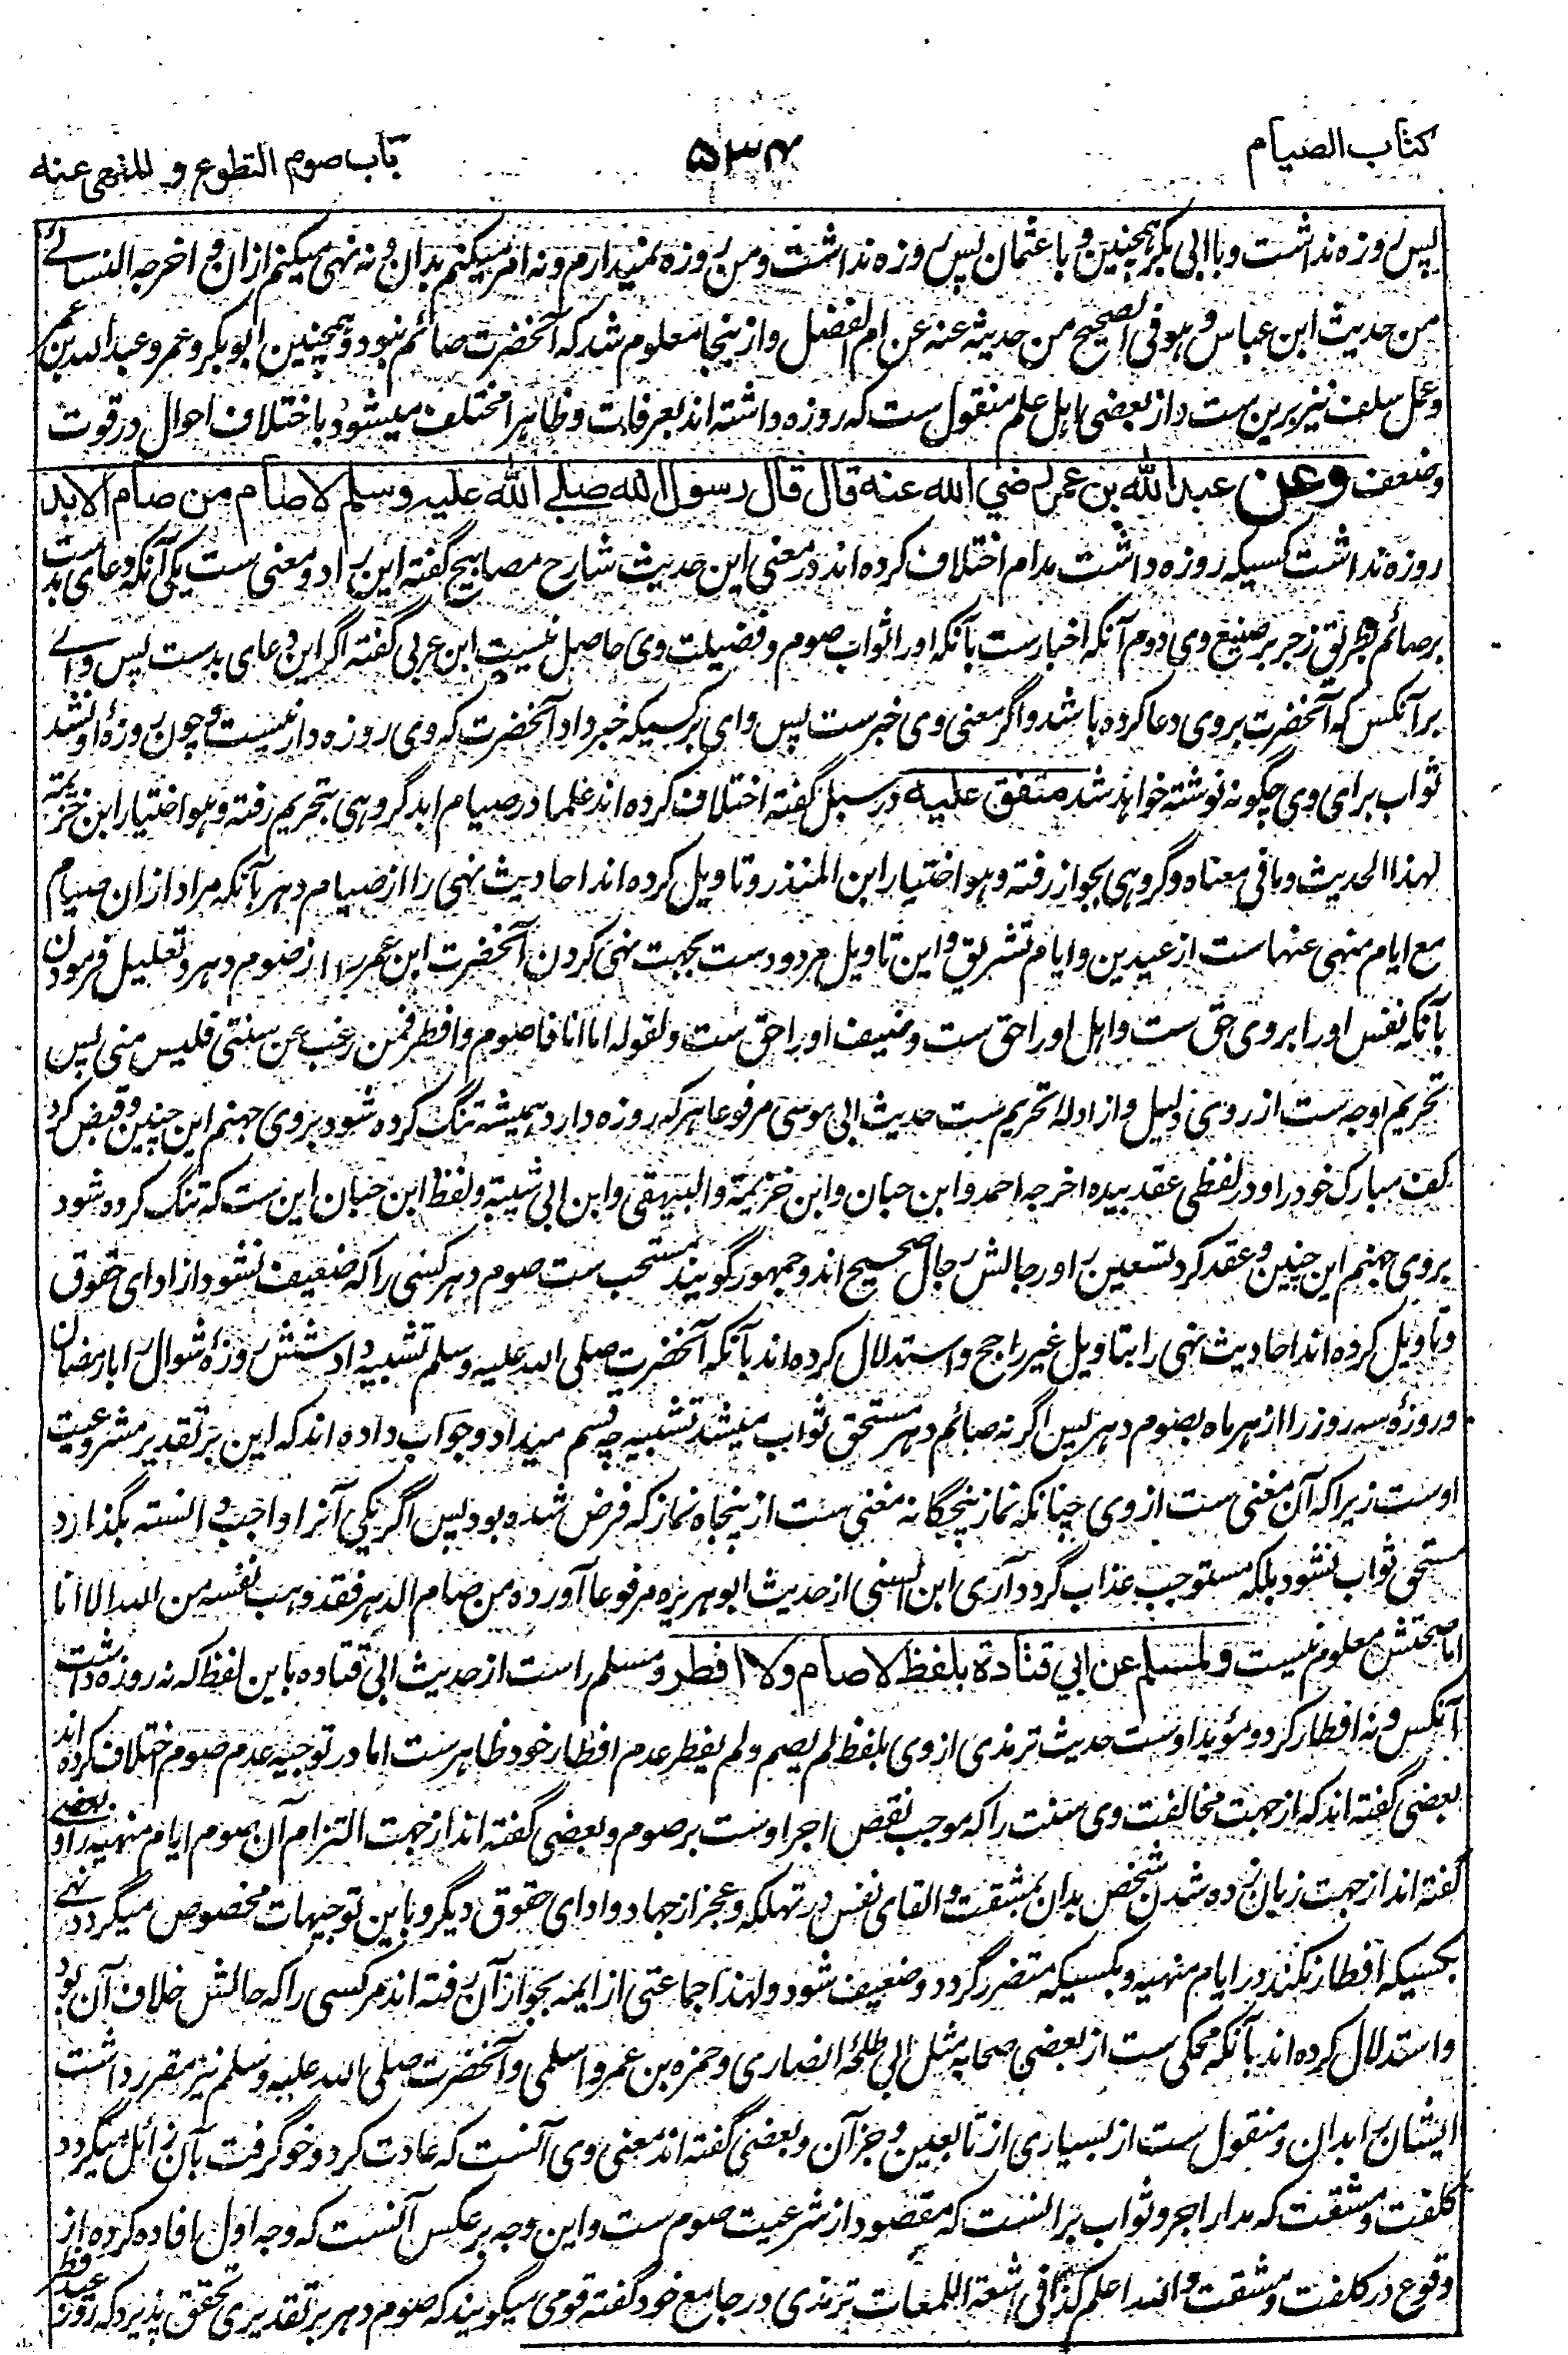 کتاب الصیام
۵۳۴
باب صوم التطوع و المنهی عنه
پس روزه نداشت و با ابی بکر همچنین و با عثمان پس روزه نداشت و من روزه نمیدارم و نه امر میکنم بدان و نه نهی میکنم ازان و اخرجه النسائے
من حدیث ابن عباس و هو فی الصحیح من حدیثه عنه عن ام الفضل و ازینجا معلوم شد که آنحضرت صائم نبود و همچنین ابوبکر و عمر و عبدالله بن عمر
و عمل سلف نیز برین ست و از بعضی اهل علم منقول ست که روزه داشته اند بعرفات و ظاهرا مختلف میشود باختلاف احوال در قوت
و ضعف وعن عبد الله بن عمر رضي الله عنه قال قال رسول الله صلے الله علیه وسلم لا صام من صام الابد
روزه نداشت کسیکه روزه داشت مدام اختلاف کرده اند در معنی این حدیث شارح مصابیح گفته این را دو معنی ست یکی آنکه دعای بد ست
بر صائم بطریق زجر بر صنیع وی دوم آنکه اخبار ست بآنکه او را ثواب صوم و فضیلت وی حاصل نیست ابن عربی گفته اگر این دعای بد ست پس واے
بر آنکس که آنحضرت بر وی دعا کرده باشد و اگر معنی وی خبر ست پس وای بر کسیکه خبر داد آنحضرت که وی روزه دار نیست و چون روزۀ او نشد
ثواب برای وی چگونه نوشته خواهد شد متفق علیه در سبل گفته اختلاف کرده اند علما در صیام ابد گروهی بتحریم رفته و هو اختیار ابن خزیمة
لهذا الحدیث و ما فی معناه و گروهی بجواز رفته و هو اختیار ابن المنذر و تاویل کرده اند احادیث نهی را از صیام دهر بآنکه مراد ازان صیام
مع ایام منهی عنها ست از عیدین و ایام تشریق و این تاویل مردود ست بجهت نهی کردن آنحضرت ابن عمر را از صوم دهر و تعلیل فرمودن
بآنکه نفس او را بر وی حق ست و اهل او را حق ست و ضیف او را حق ست و لقوله اما انا فاصوم و افطر فمن رغب عن سنتی فلیس منی پس
تحریم اوجه ست از روی دلیل و از ادلۀ تحریم ست حدیث ابی موسی مرفوعا هر که روزه دارد همیشه تنگ کرده شود بر وی جهنم این چنین و قبض کرد
کف مبارک خود را و در لفظی عقد بیده اخرجه احمد و ابن حبان و ابن خزیمة و البیهقی و ابن ابی شیبة و لفظ ابن حبان این ست که تنگ کرده شود
بر وی جهنم این چنین و عقد کرد تسعین را و رجالش رجال صحیح اند و جمهور گویند مستحب ست صوم دهر کسی را که ضعیف نشود از ادای حقوق
و تاویل کرده اند احادیث نهی را بتاویل غیر راجح و استدلال کرده اند بآنکه آنحضرت صلی الله علیه و سلم تشبیه داد شش روزۀ شوال را با رمضان
و روزۀ سه روز را از هر ماه بصوم دهر پس اگر نه صائم دهر مستحق ثواب میشد تشبیه چه قسم میداد و جواب داده اند که این بر تقدیر مشروعیت
اوست زیرا که آن مغنی ست از وی چنانکه نماز پنجگانه مغنی ست از پنجاه نماز که فرض شده بود پس اگر یکی آنرا واجب دانسته بگذارد
مستحق ثواب نشود بلکه مستوجب عذاب گردد آری ابن السنی از حدیث ابوهریره مرفوعا آورده من صام الدهر فقد وهب نفسه من الله الا انا
اما صحتش معلوم نیست ولمسلم عن ابي قتادة بلفظ لا صام ولا افطر و مسلم راست از حدیث ابی قتاده باین لفظ که نه روزه داشت
آنکس و نه افطار کرد و مؤید اوست حدیث ترمذی از وی بلفظ لم یصم و لم یفطر عدم افطار خود ظاهر ست اما در توجیه عدم صوم اختلاف کرده اند
بعضی گفته اند که از جهت مخالفت وی سنت را که موجب نقص اجر اوست بر صوم و بعضی گفته اند از جهت التزام آن صوم ایام منهیه را و بعضے
گفته اند از جهت زیان زده شدن شخص بدان بمشقت و القای نفس در تهلکه و عجز از جهاد و ادای حقوق دیگر و باین توجیهات مخصوص میگردد نهے
بکسیکه افطار نکند در ایام منهیه و بکسیکه متضرر گردد و ضعیف شود و لهذا جماعتی از ایمه بجواز آن رفته اند مر کسی را که حالش خلاف آن بود
و استدلال کرده اند بآنکه محکی ست از بعضی صحابه مثل ابی طلحۀ انصاری و حمزه بن عمرو اسلمی و آنحضرت صلی الله علیه و سلم نیز مقرر داشت
ایشان را بدان و منقول ست از بسیاری از تابعین و جز آن و بعضی گفته اند معنی وی آنست که عادت کرد و خو گرفت بآن زائل میگردد
کلفت و مشقت که مدار اجر و ثواب بر آنست که مقصود از شرعیت صوم ست و این وجه بر عکس آنست که وجه اول افاده کرده از
وقوع در کلفت و مشقت و الله اعلم کذا فی اشعة اللمعات ترمذی در جامع خود گفته قومی میگویند که صوم دهر بر تقدیری تحقق پذیرد که روز عید فطر